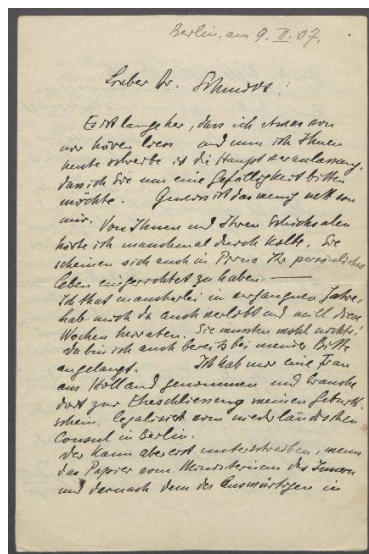 Berlin, am 9. II. 07.
Lieber Dr. Schmidt!
Es ist lange her, dass ich etwas von
mir hören liess und wenn ich Ihnen
heute schreibe ist die Hauptveranlassung,
dass ich Sie um eine Gefälligkeit bitten
möchte. Gewiss ist das wenig nett von
mir. Von Ihnen und Ihren Schicksalen
hörte ich manchmal durch Kolbe. Sie
scheinen sich auch in Pirna Ihr persönliches
Leben eingerichtet zu haben. —
Ich that mancherlei im vergangnen Jahre,
hab mich da auch verlobt und will diese
Wochen heiraten. Sie wussten wohl nichts!
Da bin ich auch bereits bei meiner Bitte
angelangt. Ich hab mir eine Frau
aus Holland genommen und brauche
dort zur Eheschliessung meinen Geburts-
schein, legalisirt vom niederländischen
Consul in Berlin.
Der kann aber erst unterschreiben, wenn
das Papier vom Ministerium des Innern
und darnach dem des Auswärtigen in